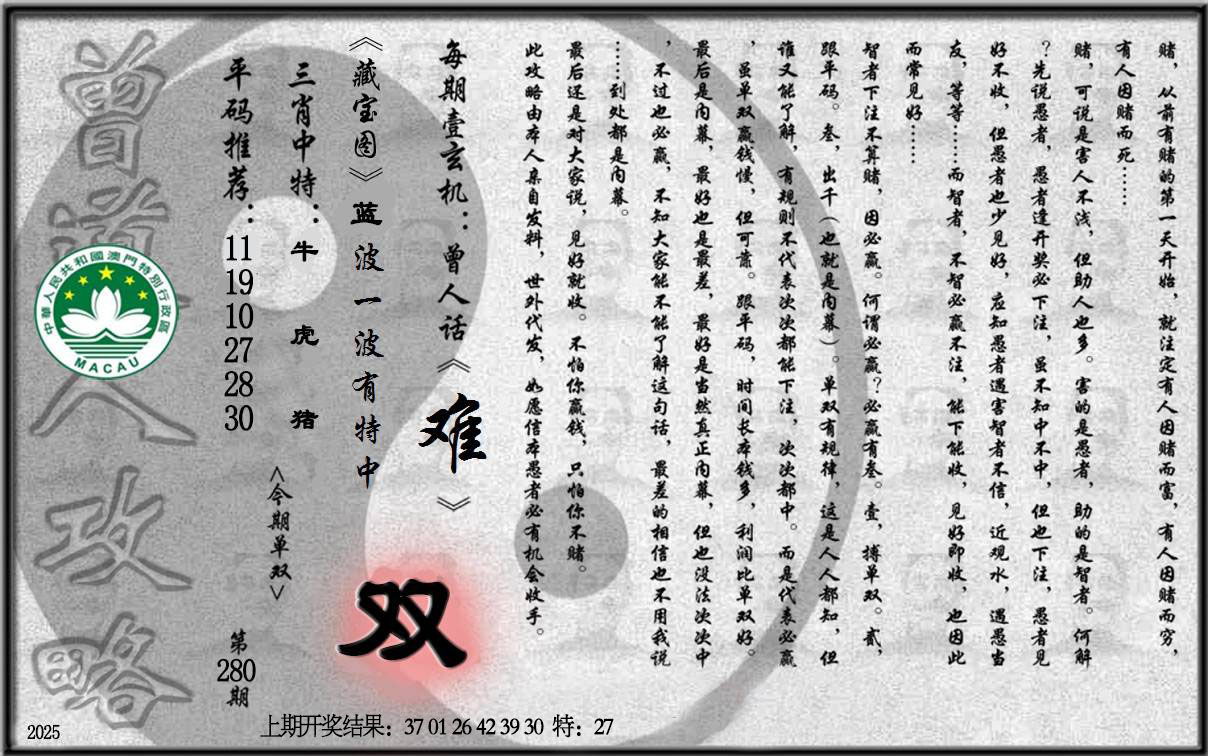 赌，从前有赌的第一天开始，就注定有人因赌而富，有人因赌而穷，
有人因赌而死……
赌，可说是害人不浅，但助人也多。害的是愚者，助的是智者。何解
？先说愚者，愚者逢开奖必下注，虽不知中不中，但也下注，愚者见
好不收，但愚者也少见好，应知愚者遇害智者不信，近观水，遇愚当
友，等等……而智者，不智必赢不注，能下能收，见好即收，也因此
而常见好……
智者下注不算赌，因必赢。何谓必赢？必赢有叁。壹，搏单双。贰，
跟平码。叁，出千（也就是内幕）。单双有规律，这是人人都知，但
谁又能了解，有规则不代表次次都能下注，次次都中。而是代表必赢
，虽单双赢钱慢，但可靠。跟平码，时间长本钱多，利润比单双好。
最后是内幕，最好也是最差，最好是当然真正内幕，但也没法次次中
，不过也必赢，不知大家能不能了解这句话，最差的相信也不用我说
……到处都是内幕。
最后还是对大家说，见好就收。不怕你赢钱，只怕你不赌。
此攻略由本人亲自发料，世外代发，如愿信本愚者必有机会收手。
每期壹玄机：曾人话《难》
《藏宝图》蓝波一波有特中
双
三肖中特：牛 虎 猪
<今期单双>
平码推荐：11 19 10 27 28 30
第280期
曾道人攻略
中華人民共和國澳門特別行政區
MACAU
2025
上期开奖结果：37 01 26 42 39 30 特：27